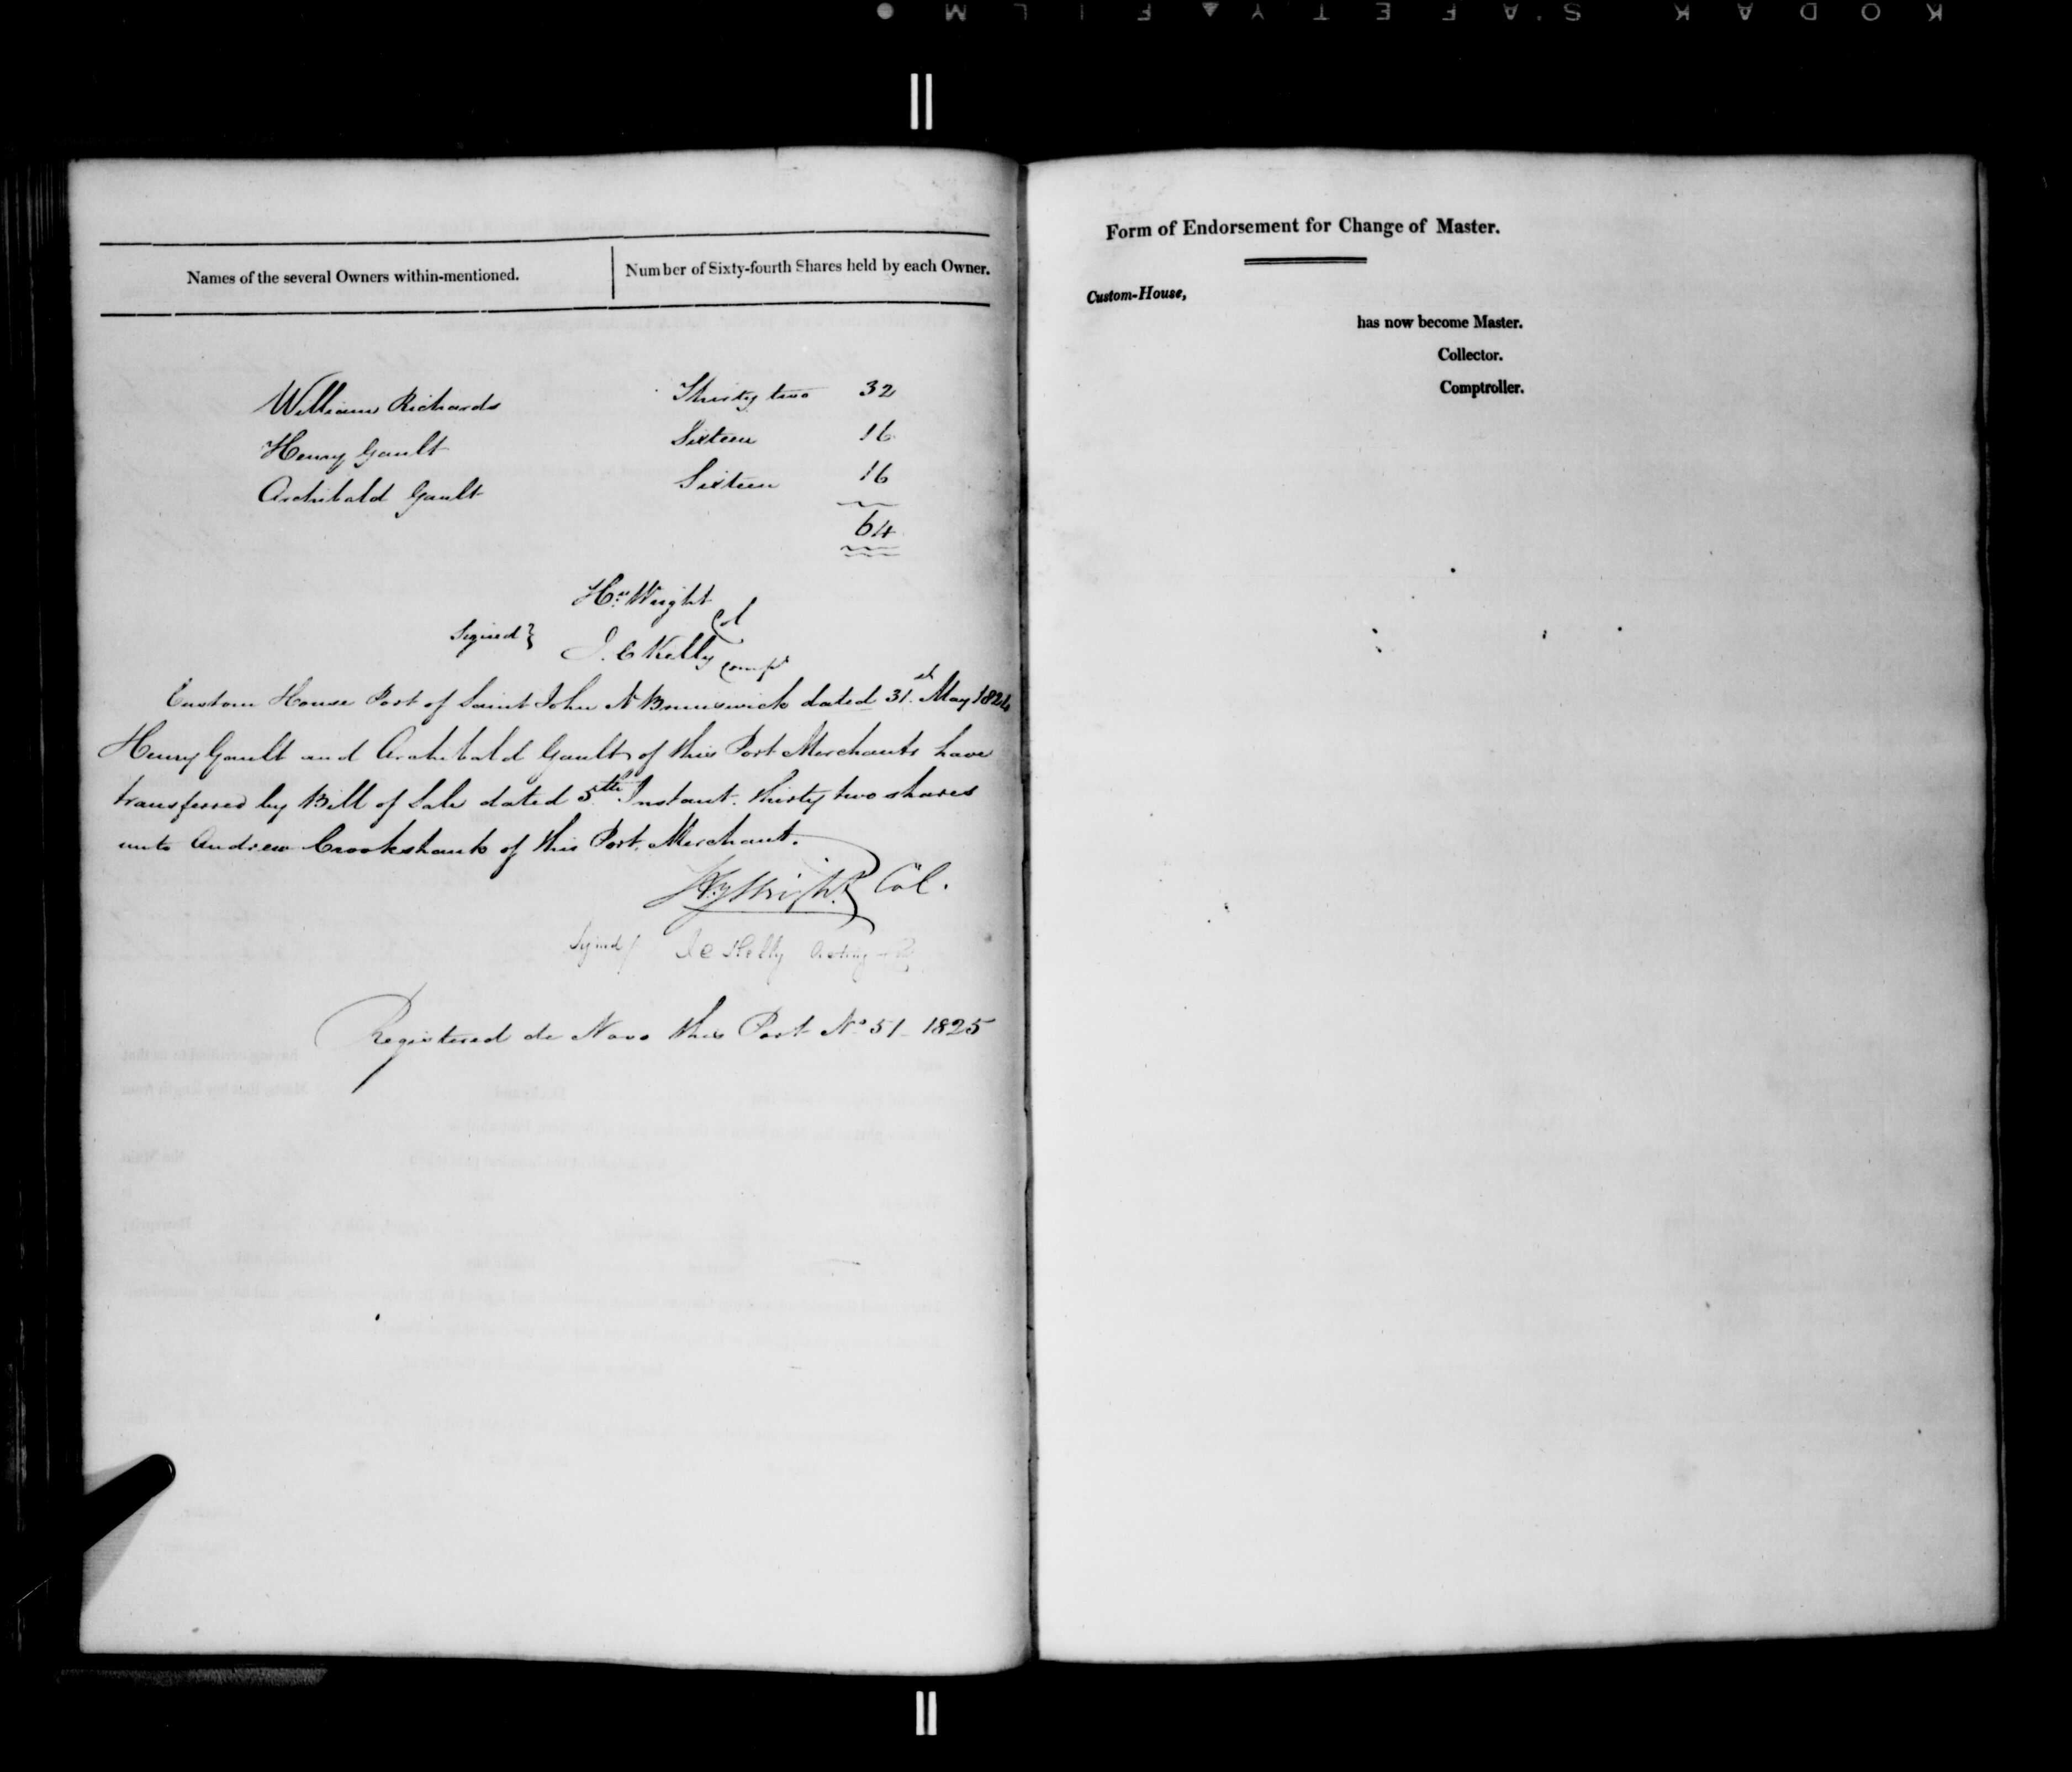 KODAK SAFETY FILM
Names of the several Owners within-mentioned. Number of Sixty-fourth Shares held by each Owner.
William Richards Thirty two 32
Henry Gault Sixteen 16
Archibald Gault Sixteen 16
64
Hy Wright Col
Signed } J. C Kelly Compr
Custom House Port of Saint John N Brunswick dated 31.st May 1824
Henry Gault and Archibald Gault of this Port Merchants have
transferred by Bill of Sale dated 5th Instant. thirty two shares
unto Andrew Crookshank of this Port. Merchant.
Hy Wright Col.
Signed J C Kelly Acting
Registered de Novo this Port No 51 - 1825
Form of Endorsement for Change of Master.
Custom-House,
has now become Master.
Collector.
Comptroller.